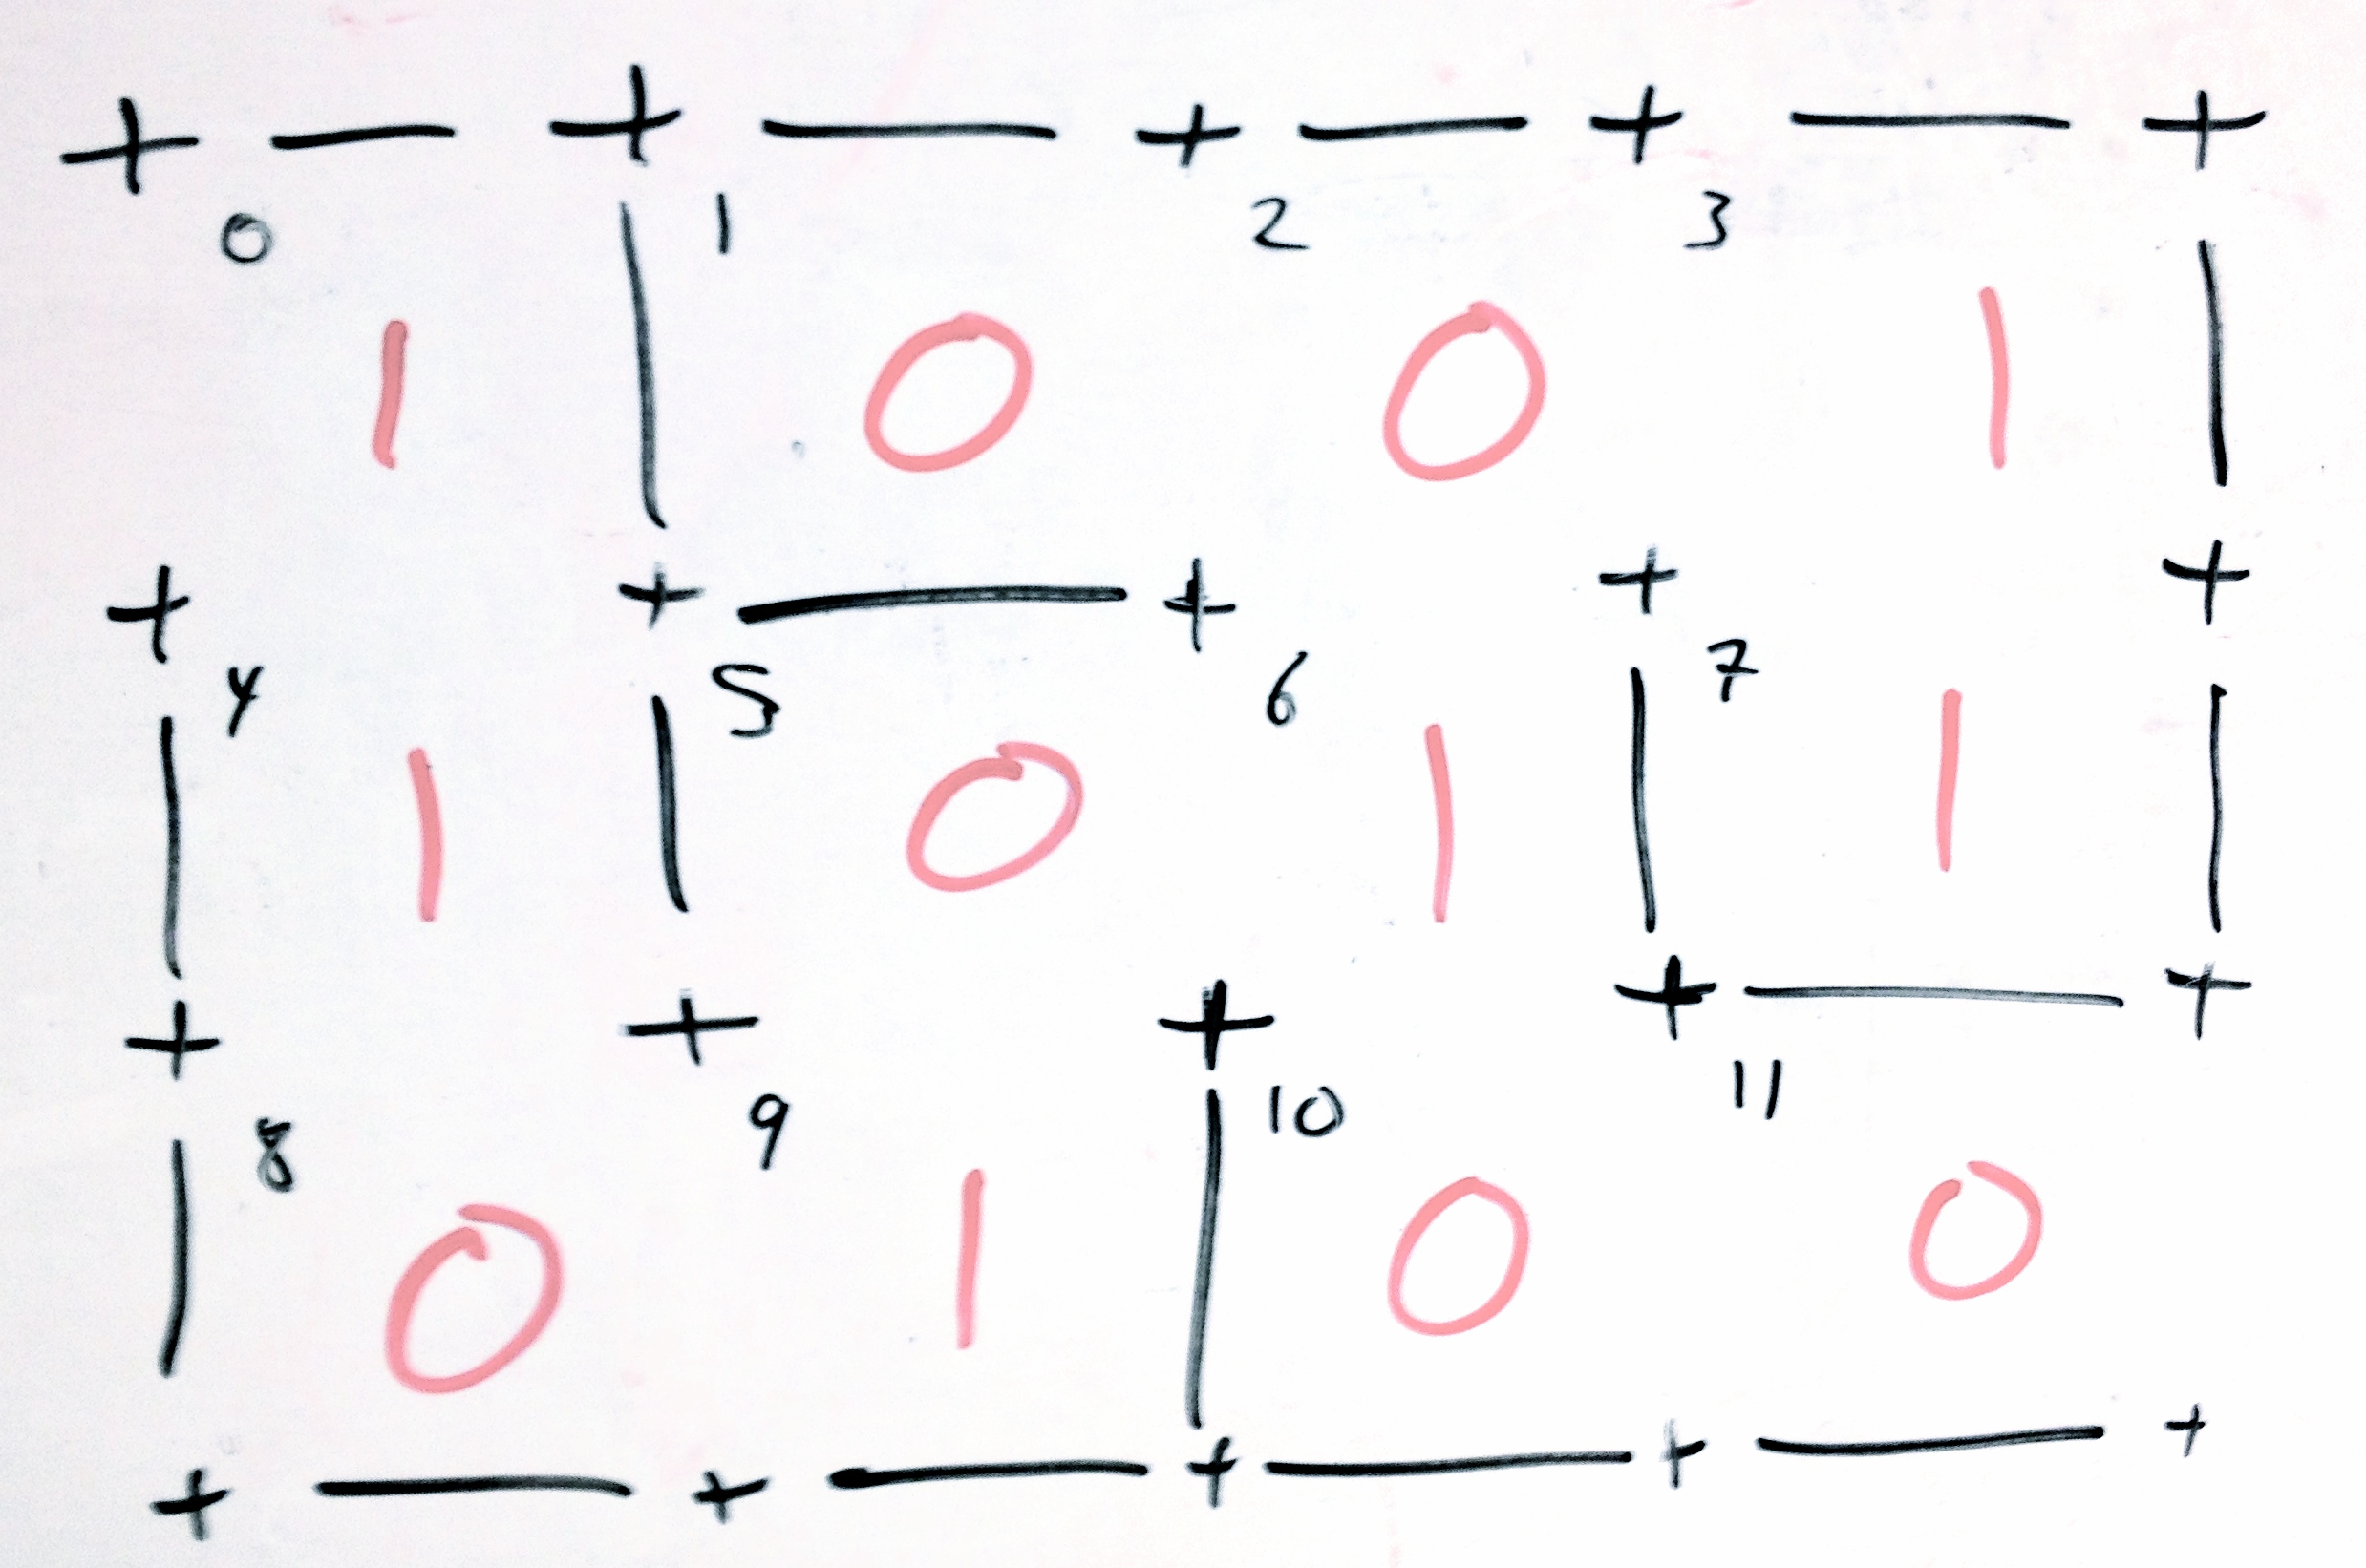 0 1 2 3
1 0 0 1
4 5 6 7
1 0 1 1
8 9 10 11
0 1 0 0